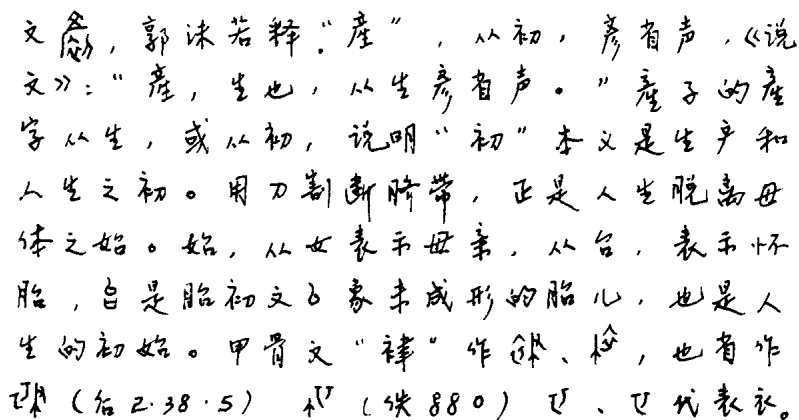 文，郭沫若释“產”，从初，彦省声，《说
文》：“產，生也，从生彦省声。”產子的產
字从生，或从初，说明“初”本义是生产和
人生之初。用刀割断脐带，正是人生脱离母
体之始。始，从女表示母亲，从台，表示怀
胎，台是胎初文象未成形的胎儿，也是人
生的初始。甲骨文“褘”作、，也有作
（后2·38·5）（佚880）、代表衣。